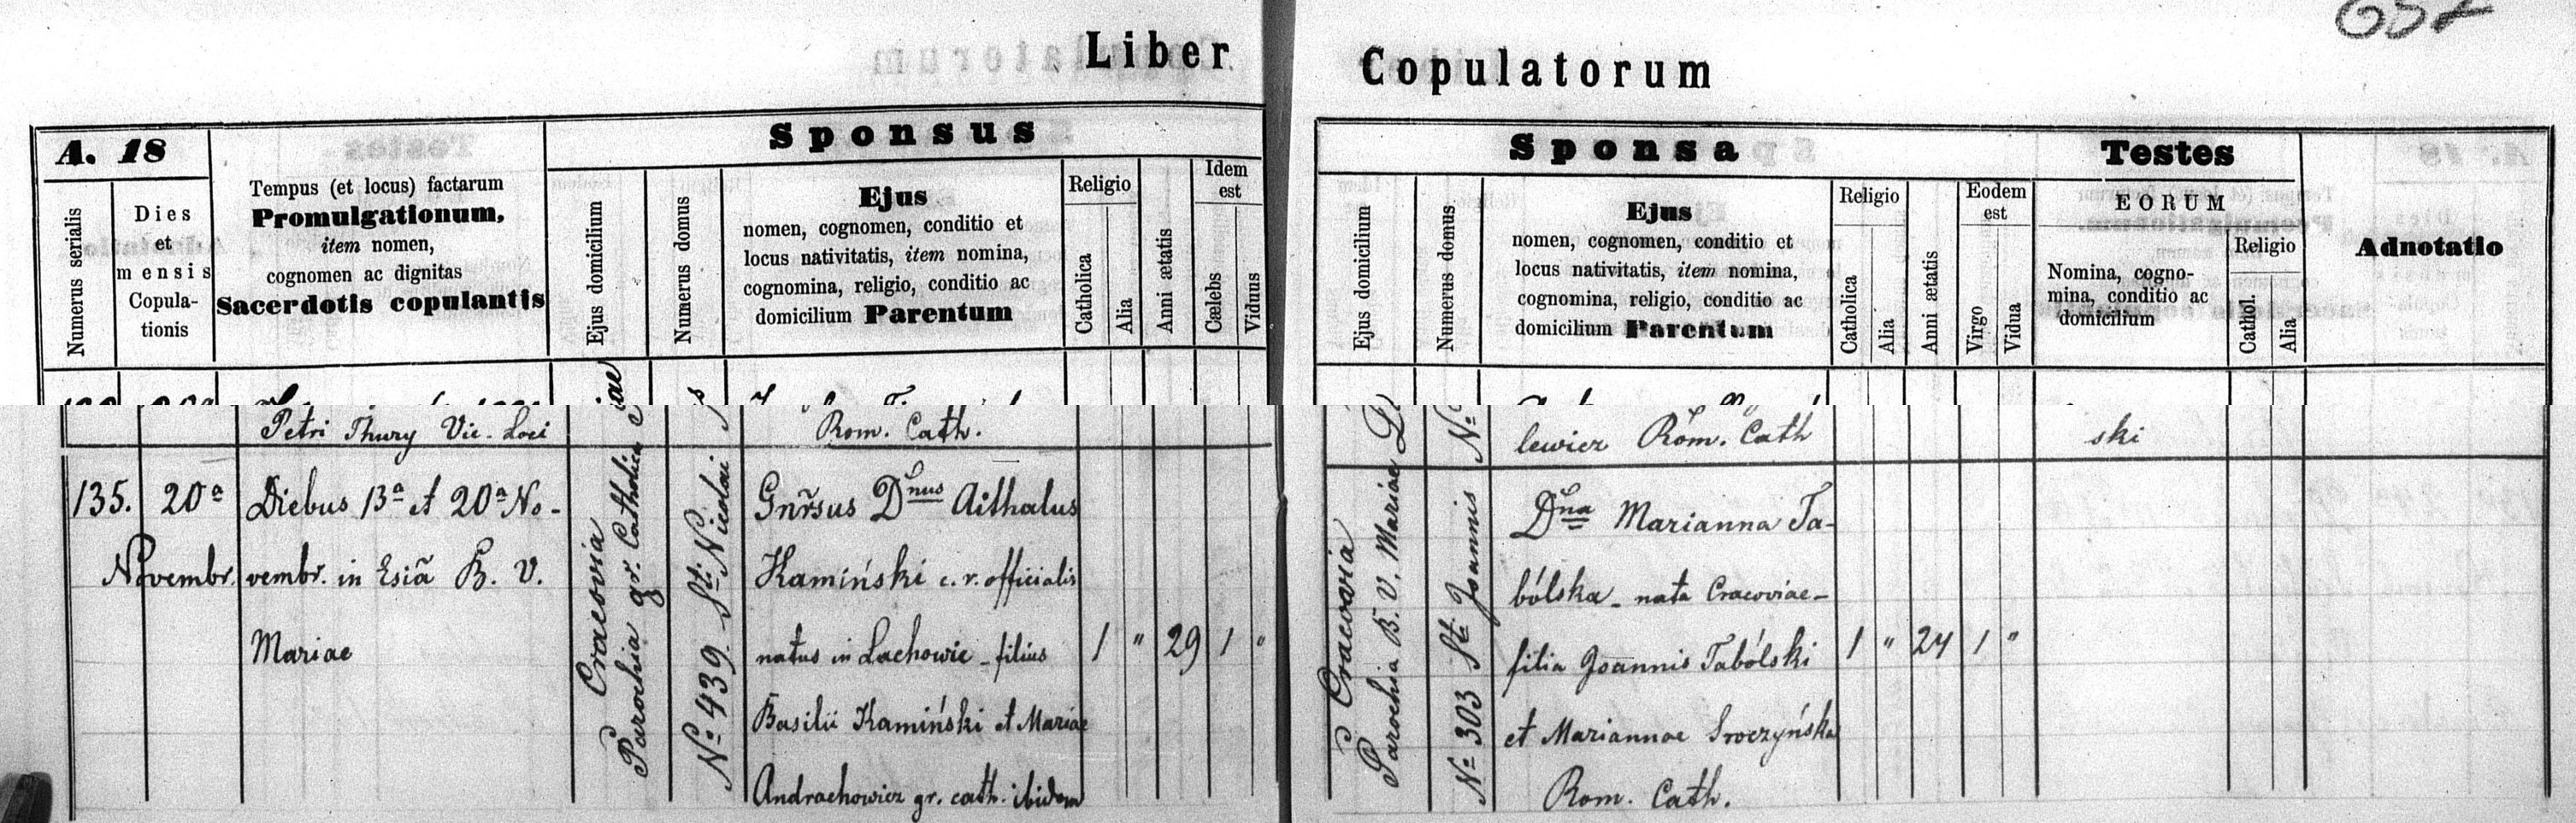 Liber Copulatorum
A. 18
Numerus serialis
Dies
et
mensis
Copula-
tionis
Tempus (et locus) factarum
Promulgationum,
item nomen,
cognomen ac dignitas
Sacerdotis copulantis
Sponsus
Ejus domicilium
Numerus domus
Ejus
nomen, cognomen, conditio et
locus nativitatis, item nomina,
cognomina, religio, conditio ac
domicilium Parentum
Religio
Catholica
Alia
Anni ætatis
Idem
est
Cælebs
Viduus
Sponsa
Ejus domicilium
Numerus domus
Ejus
nomen, cognomen, conditio et
locus nativitatis, item nomina,
cognomina, religio, conditio ac
domicilium Parentum
Religio
Catholica
Alia
Anni ætatis
Eodem
est
Virgo
Vidua
Testes
EORUM
Nomina, cogno-
mina, conditio ac
domicilium
Religio
Cathol.
Alia
Adnotatio
Petri Thury Vic. Loci
Rom. Cath.
lewicz Rom. Cath
ski
135.
20ª
Novembr.
Diebus 13ª et 20ª No-
vembr. in Esiã B. V.
Mariae
Cracovia
Parochia gr. Catholica
Nº 439 Sti Nicolai
Gnr̃sus Dnus Aithalus
Kamiński c. r. officialis
natus in Lachowic - filius
Basilii Kamiński et Mariae
Andrachowicz gr. cath. ibidem
1 " 29 1 "
Cracovia
Parochia B. V. Mariae
Nº 303 Sti Joannis
Dna Marianna Ta-
bólska - nata Cracoviae -
filia Joannis Tabólski
et Mariannae Sroczyńska
Rom. Cath.
1 " 24 1 "